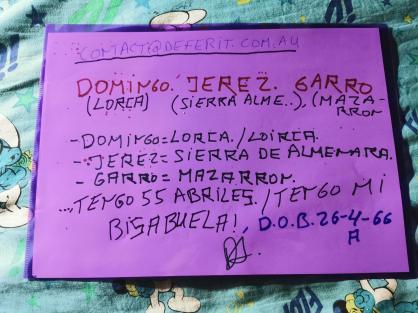 CONTACT@DEFERIT.COM.AU
DOMINGO. JEREZ. GARRO
(LORCA) (SIERRA ALME..), (MAZA-
RRON
- DOMINGO=LORCA./LOIRCA.
- JEREZ=SIERRA DE ALMENARA.
- GARRO= MAZARRON.
...TENGO 55 ABRILES./TENGO MI
BISABUELA!, D.O.B. 26-4-66
A